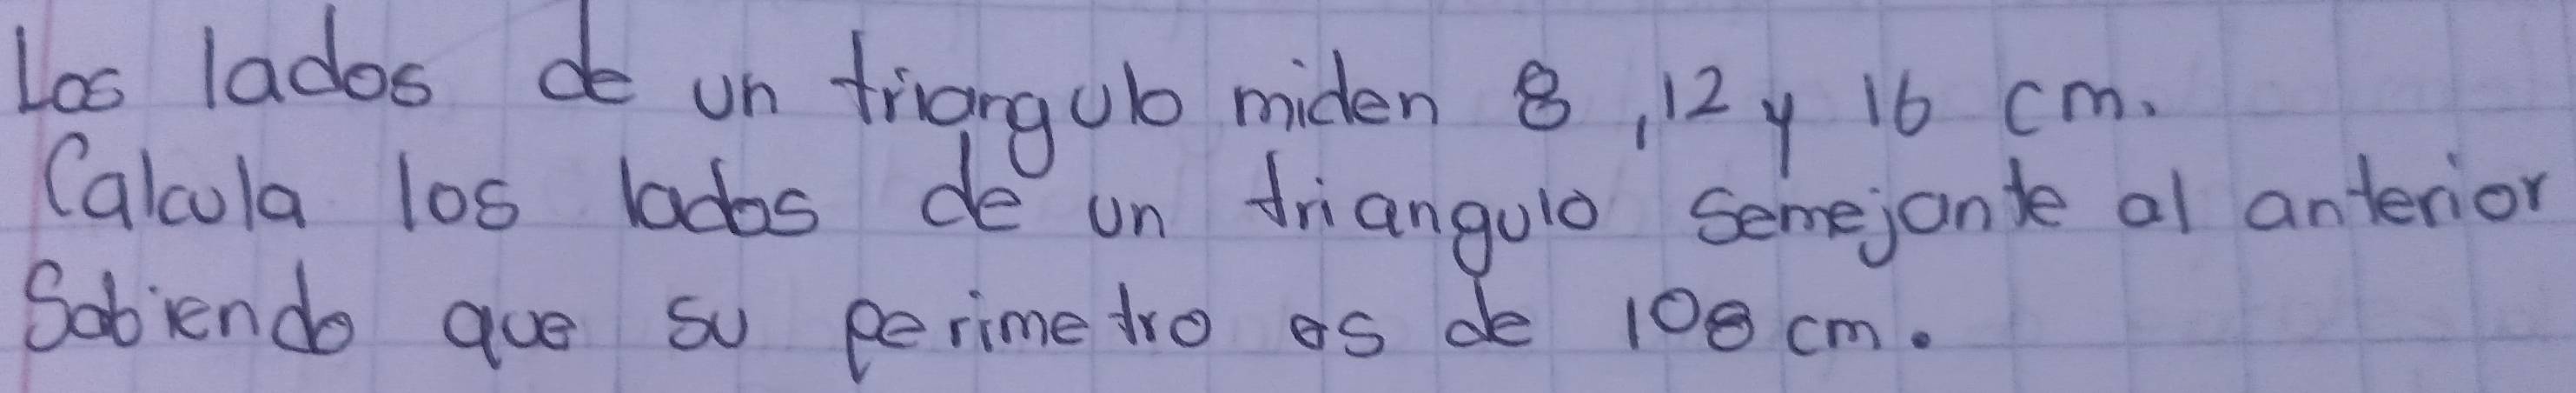 Los lados de un triangulo miden 8, 12 y 16 cm.
Calcula los lados de un triangulo semejante al anterior
Sabiendo que su perimetro es de 108 cm.